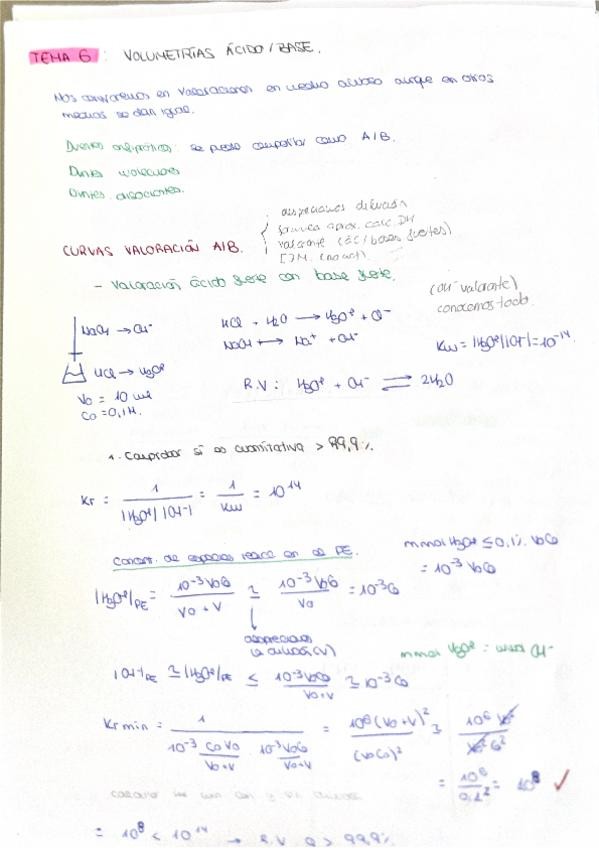 TEMA 6 : VOLUMETRÍAS ÁCIDO / BASE.
Nos centraremos en valoraciones en medio acuoso aunque en otros
medios se dan igual.
se puede comportar como A/B.
CURVAS VALORACIÓN A/B.
despreciamos dilución
fórmula aprox. calc. pH
valorante (ác / bases fuertes)
- Valoración ácido fuerte con base fuerte.
(OH⁻ valorante)
conocemos todo.
NaOH → OH⁻
HCl → H₃O⁺
V₀ = 10 ml
C₀ = 0,1 M.
HCl + H₂O → H₃O⁺ + Cl⁻
NaOH → Na⁺ + OH⁻
Kw = |H₃O⁺| |OH⁻| = 10⁻¹⁴
R.V : H₃O⁺ + OH⁻ ⇌ 2H₂O
1. Comprobar si es cuantitativa > 99,9 %.
Kr = 1 / |H₃O⁺| |OH⁻| = 1 / Kw = 10¹⁴
Concent. de especies reacc en el PE.
mmol H₃O⁺ ≤ 0,1 % V₀C₀
= 10⁻³ V₀C₀
|H₃O⁺|PE = 10⁻³ V₀C₀ / V₀ + V ≅ 10⁻³ V₀C₀ / V₀ = 10⁻³ C₀
despreciamos
la dilución (V)
mmol H₃O⁺ = mmol OH⁻
|OH⁻|PE ≅ |H₃O⁺|PE ≤ 10⁻³ V₀C₀ / V₀+V ≅ 10⁻³ C₀
Kr min = 1 / 10⁻³ C₀V₀ / V₀+V · 10⁻³ V₀C₀ / V₀+V = 10⁶ (V₀+V)² / (V₀C₀)² ≅ 10⁶ V₀² / V₀² C₀²
= 10⁶ / 0,1² = 10⁸ ✓
= 10⁸ < 10¹⁴ → R.V. Q > 99,9 %